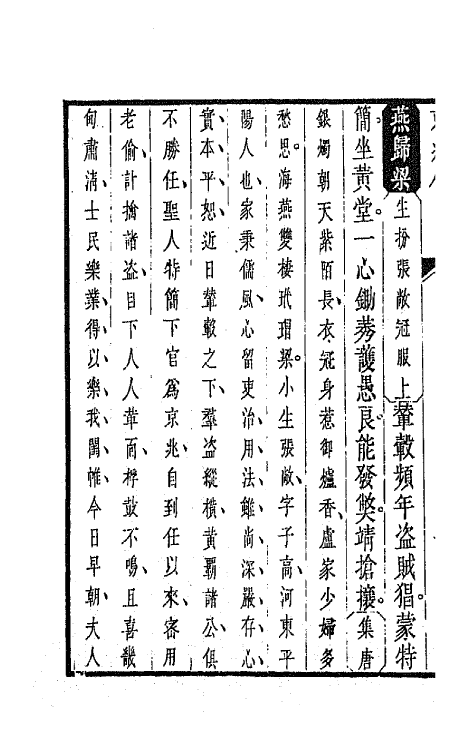 燕歸梁生扮張敞冠服上輦轂頻年盗賊猖。蒙特
簡坐黃堂。一心鋤莠護愚良。能發奬。靖搶攘。集唐
銀燭朝天紫陌長、衣冠身惹御爐香、盧家少婦多
愁思、海燕雙棲玳瑁梁。小生張敞、字子高、河東平
陽人也、家秉儒風、心留吏治、用法雖尚深嚴、存心
實本平恕、近日輦轂之下、羣盗縱横、黃霸諸公、俱
不勝任、聖人特簡下官爲京兆、自到任以來、密用
老偷計擒諸盗、目下人人革面、桴鼓不鳴、且喜畿
甸肅清、士民樂業、得以樂我閨帷、今日早朝、夫人